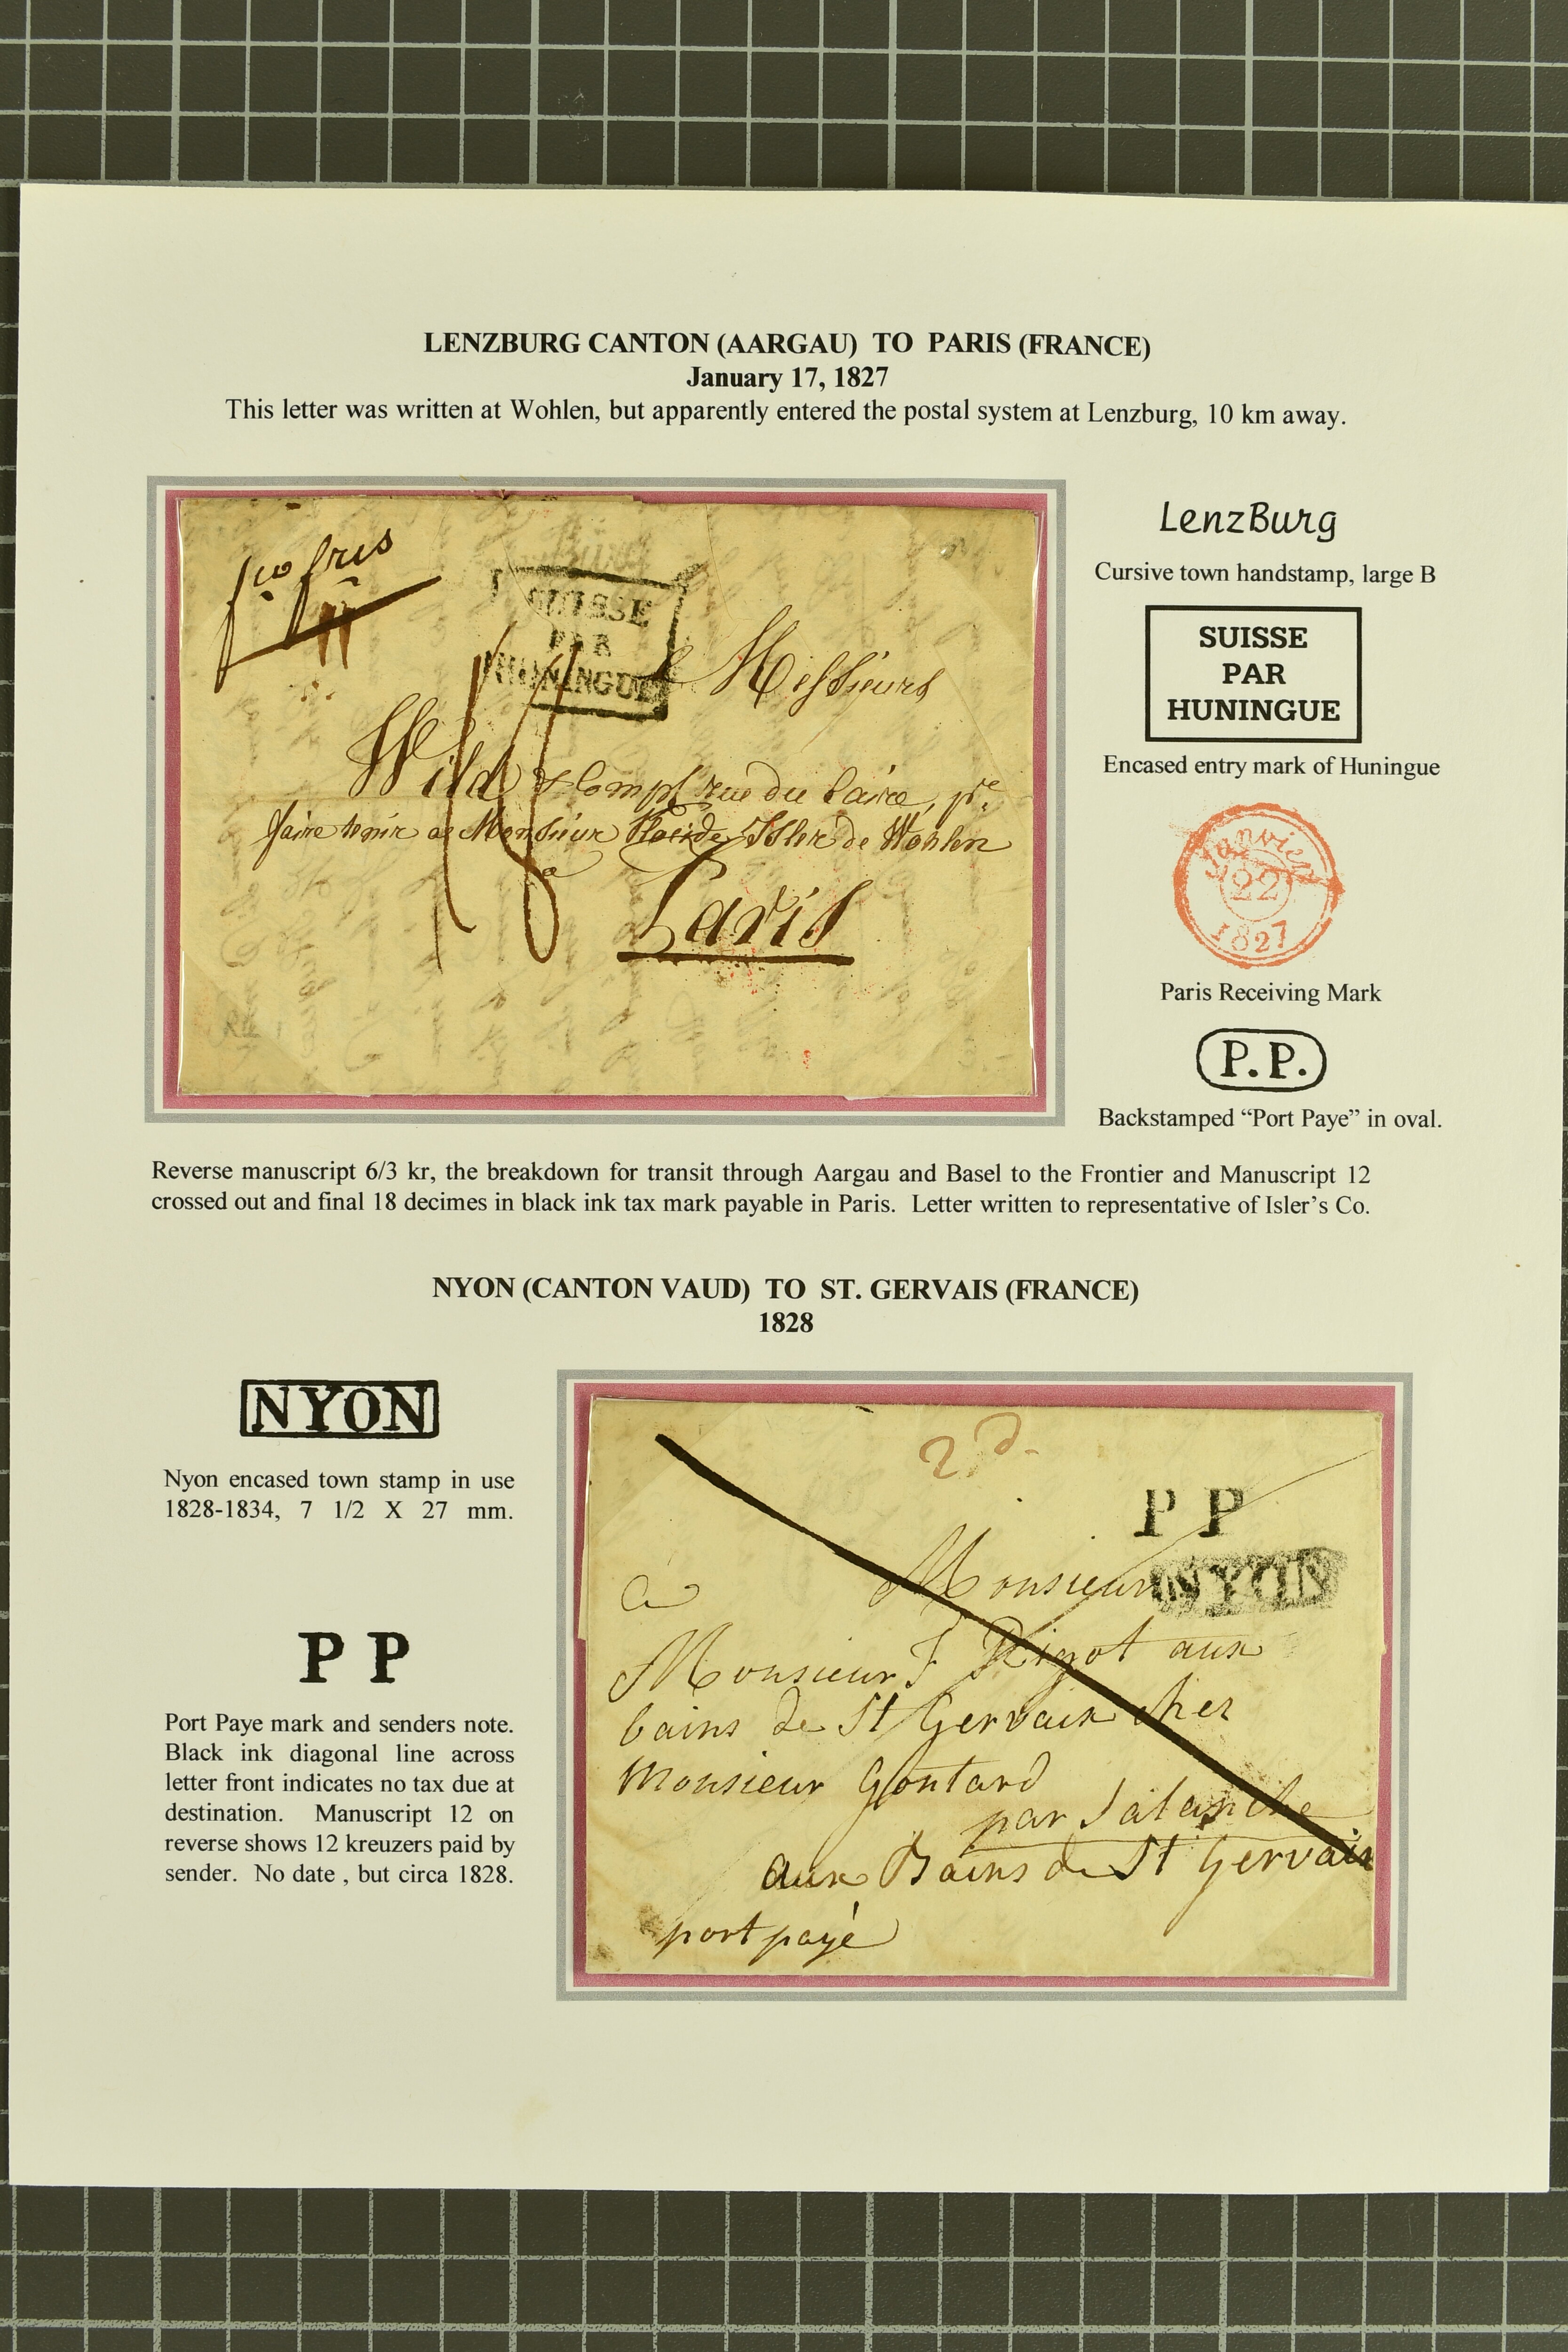 LENZBURG CANTON (AARGAU) TO PARIS (FRANCE)
January 17, 1827
This letter was written at Wohlen, but apparently entered the postal system at Lenzburg, 10 km away.
fco fris
SUISSE
PAR
HUNINGUE
Messieurs
Wild & Comp rue du Caire, pr
faire tenir a Monsieur Placide Isler de Wohlen
a
Paris
18
LenzBurg
Cursive town handstamp, large B
SUISSE
PAR
HUNINGUE
Encased entry mark of Huningue
Janvier
22
1827
Paris Receiving Mark
P.P.
Backstamped “Port Paye” in oval.
Reverse manuscript 6/3 kr, the breakdown for transit through Aargau and Basel to the Frontier and Manuscript 12
crossed out and final 18 decimes in black ink tax mark payable in Paris. Letter written to representative of Isler’s Co.
NYON (CANTON VAUD) TO ST. GERVAIS (FRANCE)
1828
NYON
Nyon encased town stamp in use
1828-1834, 7 1/2 X 27 mm.
P P
Port Paye mark and senders note.
Black ink diagonal line across
letter front indicates no tax due at
destination. Manuscript 12 on
reverse shows 12 kreuzers paid by
sender. No date , but circa 1828.
2 d.
P P
NYON
a Monsieur
Monsieur F Rigot aux
bains de St Gervais chez
Monsieur Gontard
par Salanche
aux Bains de St Gervais
port payé